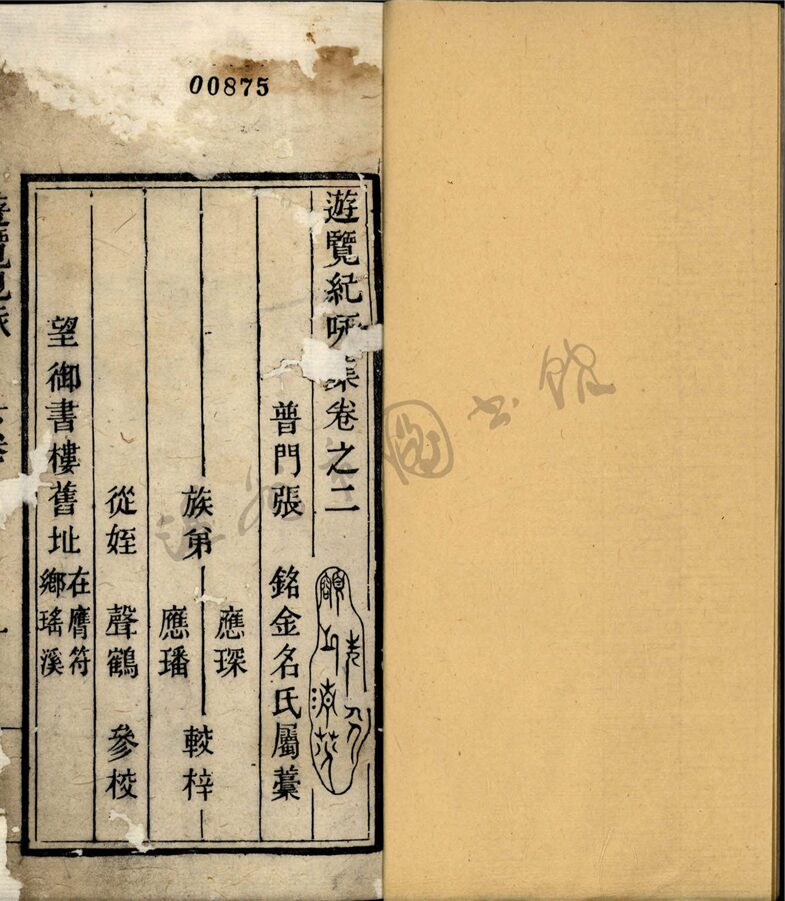 00875
遊覽紀
集卷之二
普門張 銘金名氏屬藁
族弟 應琛 應璠 較梓
從姪 聲鶴 參校
望御書樓舊址 在膺符鄉瑤溪
圖書館